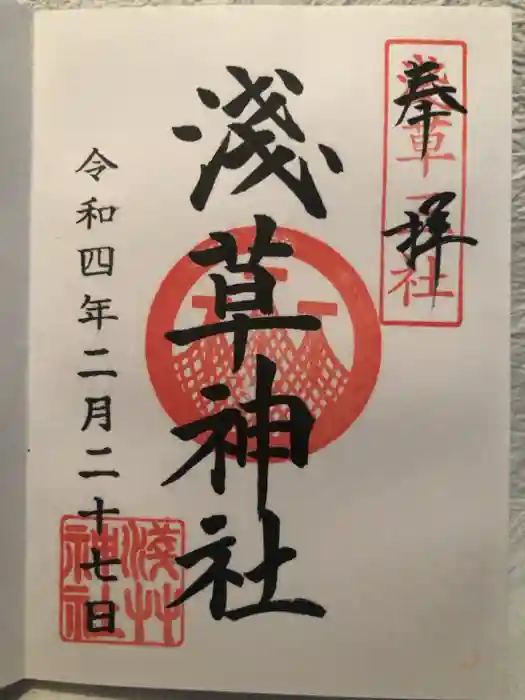 奉拝
淺草三社
淺草神社
令和四年二月二十七日
淺草神社